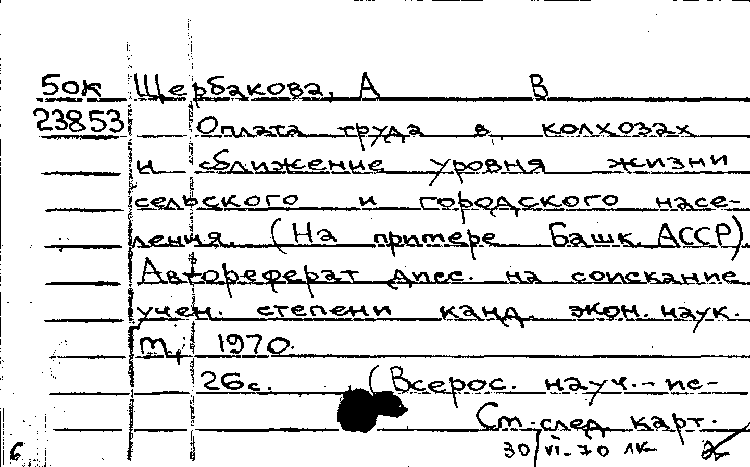 50к Щербакова, А В
23853 Оплата труда в колхозах
и сближение уровня жизни
сельского и городского насе-
ления. (На примере Башк. АССР)
Автореферат дисс. на соискание
учен. степени канд. экон. наук.
М., 1970.
26с. (Всерос. науч.-ис-
См. след. карт.
6 30/VI-70 лк